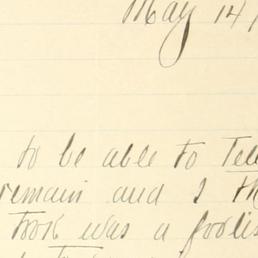 May 14,
to be able to Tele
remain and I th
Took was a foolis